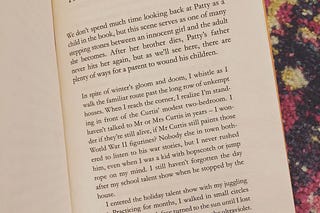 We don't spend much time looking back at Patty as a
child in the book, but this scene serves as one of many
stepping stones between an innocent girl and the adult
she becomes. After her brother dies, Patty's father
never hits her again, but as we'll see here, there are
plenty of ways for a parent to wound his children.
In spite of winter's gloom and doom, I whistle as I
walk the familiar route past the long row of unkempt
houses. When I reach the corner, I realize I'm stand-
ing in front of the Curtis' modest two-bedroom. I
haven't talked to Mr or Mrs Curtis in years – I won-
der if they're still alive, if Mr Curtis still paints those
World War II figurines? Nobody else in town both-
ered to listen to his war stories, but I never rushed
him, even when I was a kid with hopscotch or jump
rope on my mind. I still haven't forgotten the day
after my school talent show when he stopped by the
house.
I entered the holiday talent show with my juggling
Practicing for months, I walked in small circles
turned to the sun until I lost
ultraviolet.